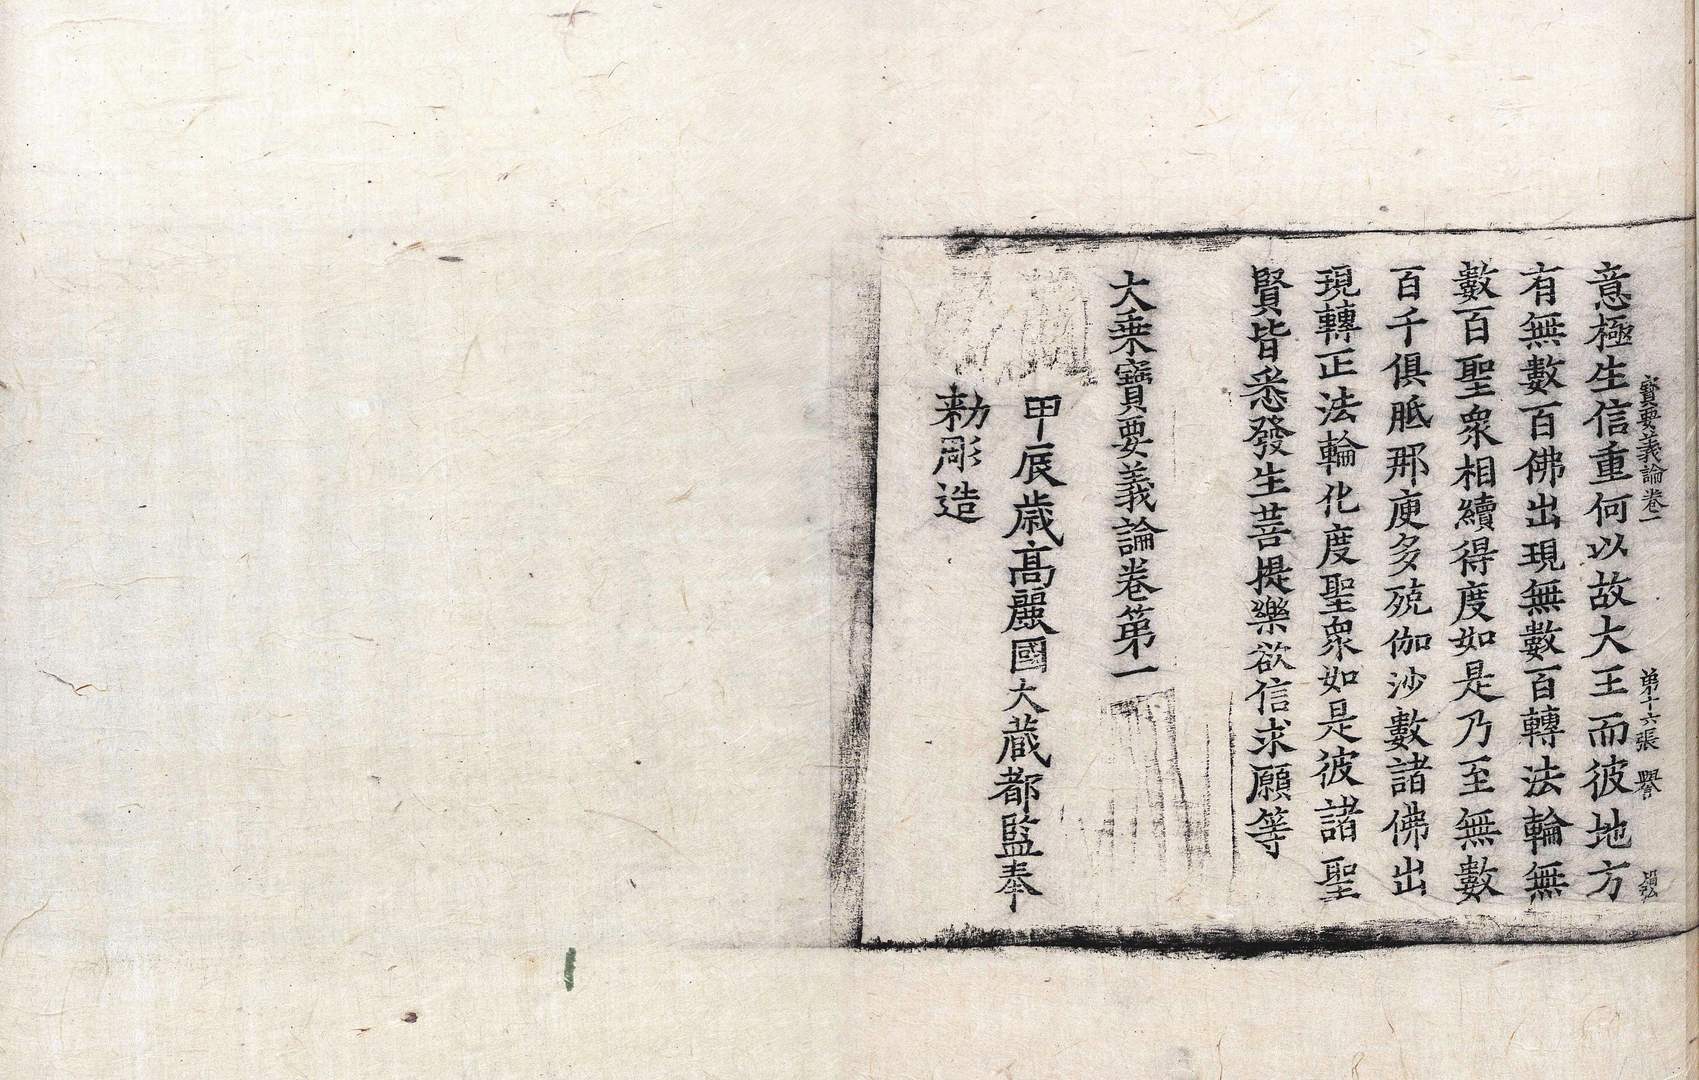 寶要義論卷一 第十六張 譽
意極生信重何以故大王而彼地方
有無數百佛出現無數百轉法輪無
數百聖衆相續得度如是乃至無數
百千俱胝那庾多殑伽沙數諸佛出
現轉正法輪化度聖衆如是彼諸聖
賢皆悉發生菩提樂欲信求願等
大乗寶要義論卷第一
甲辰歳高麗國大藏都監奉
勅彫造